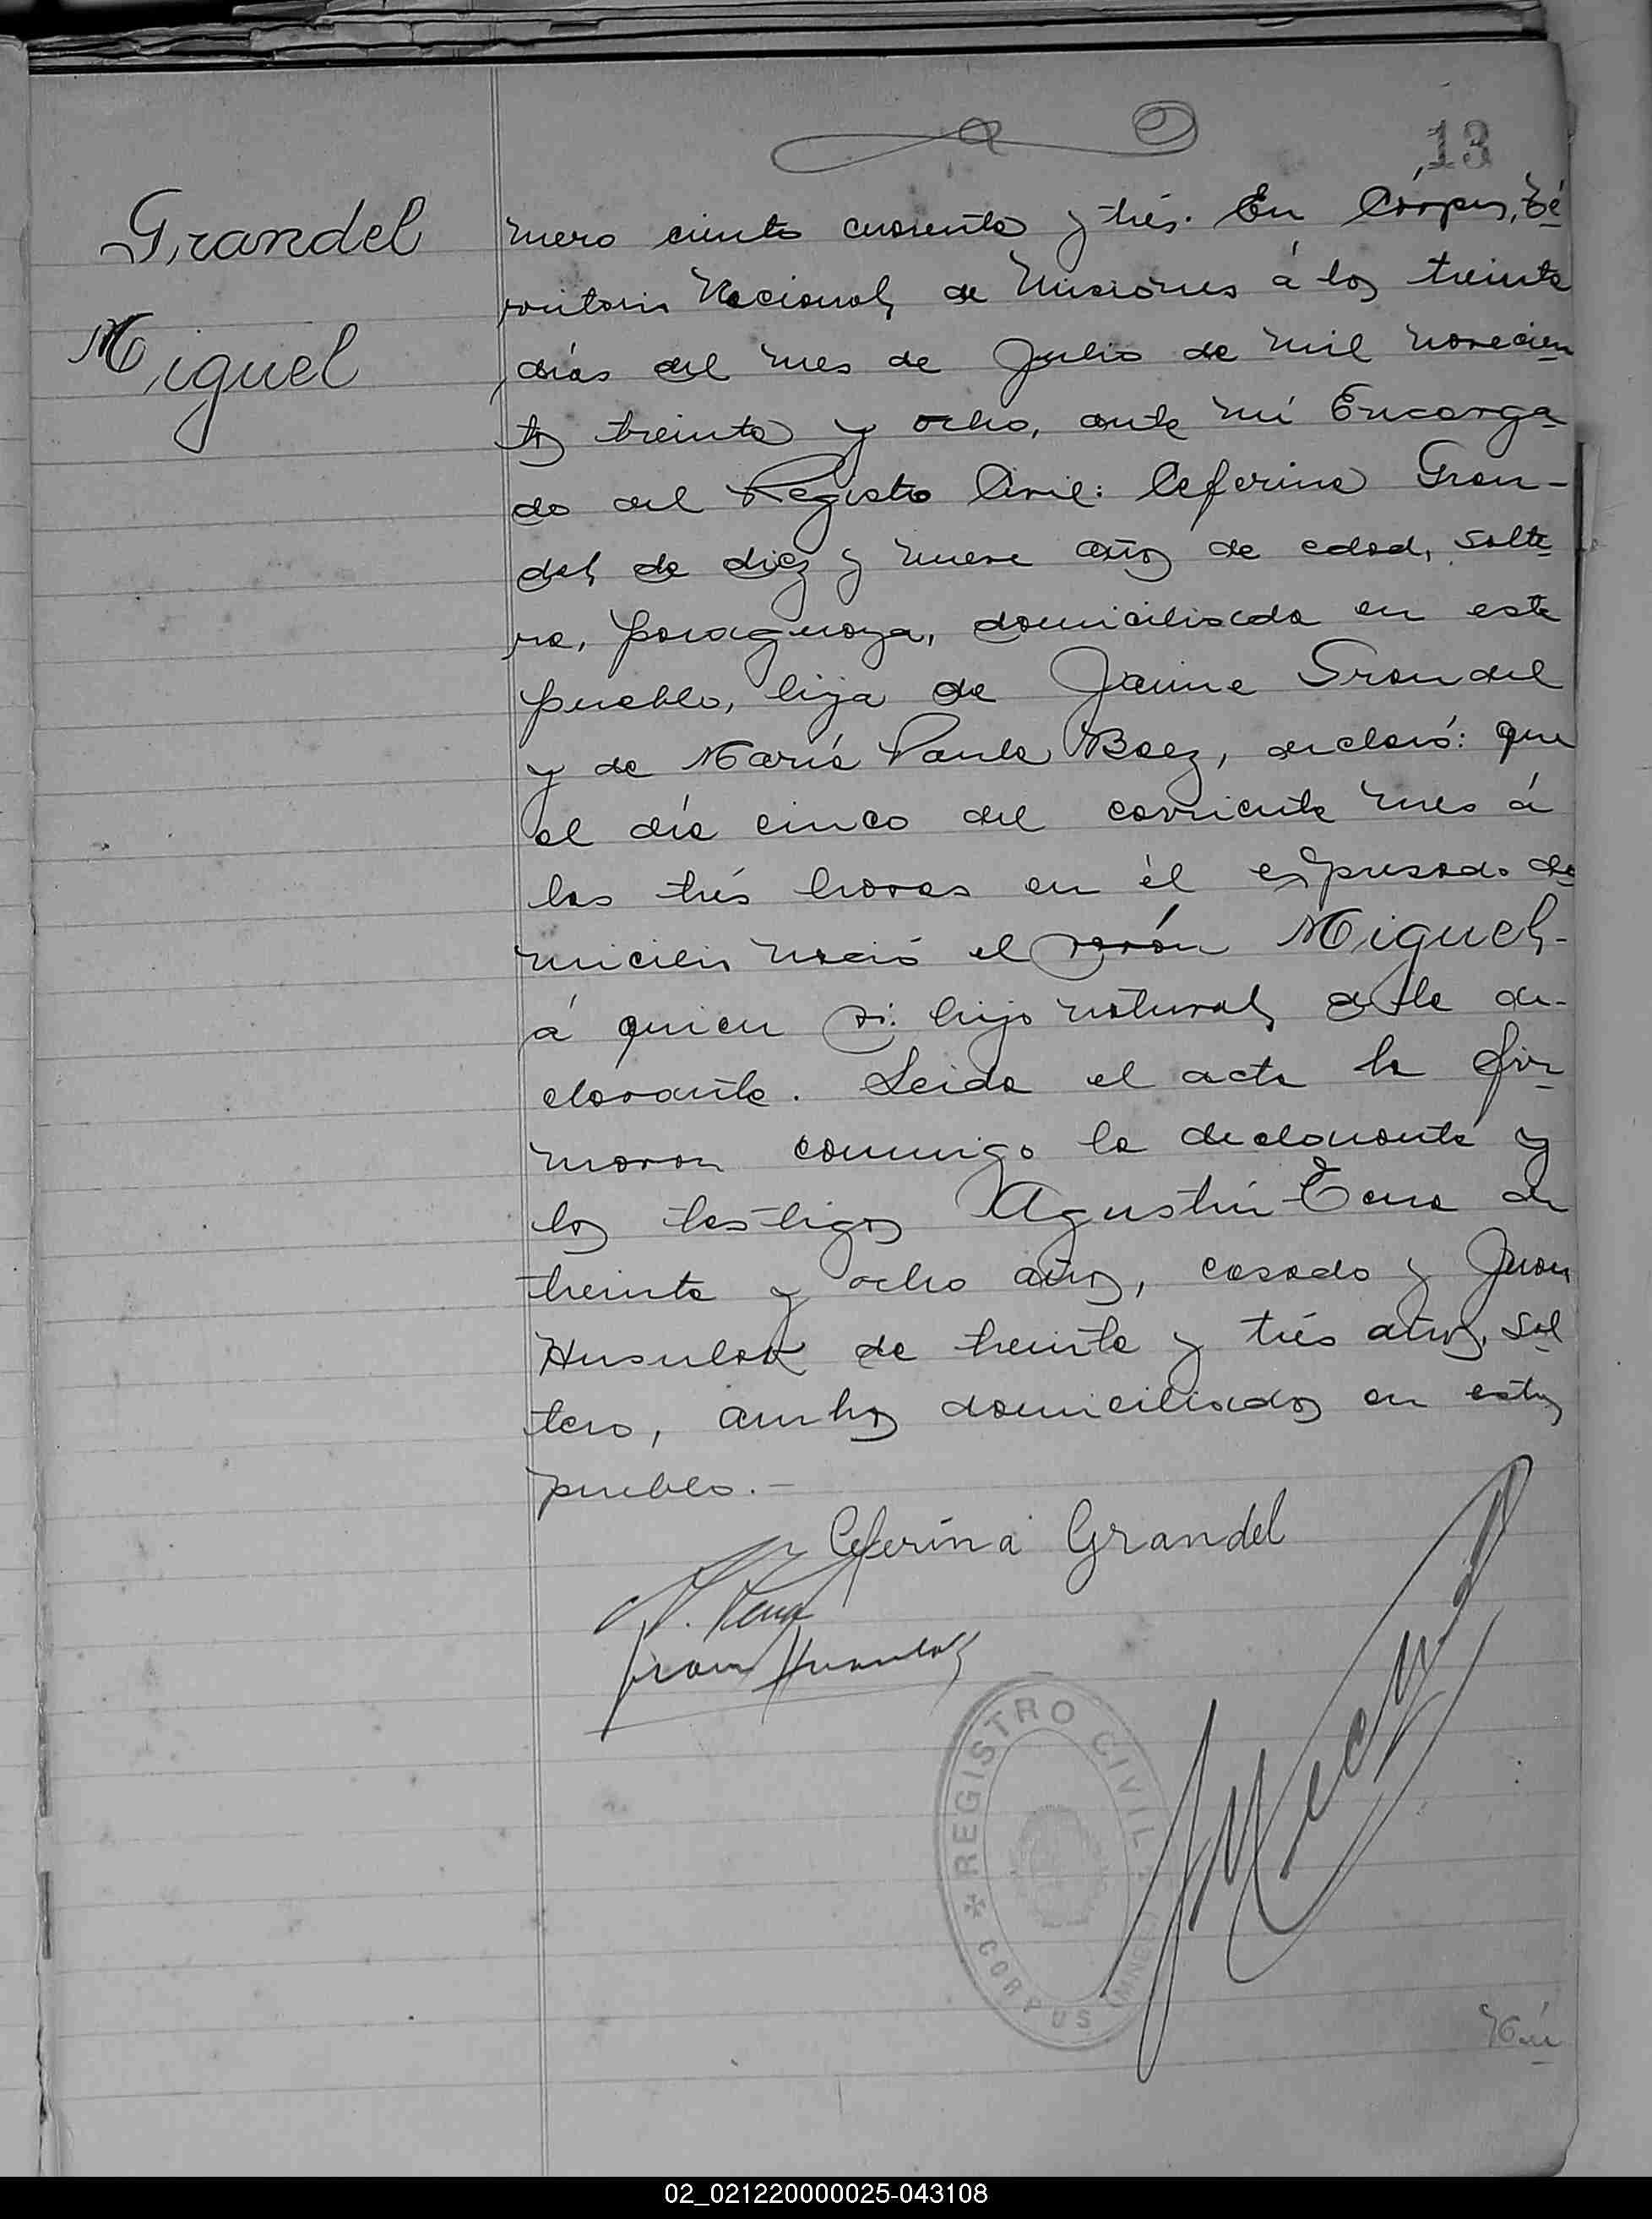 13
Grandel
Miguel
mero ciento cuarenta y trés. En Córpus, Té
rritorio Nacional de Misiónes á los treinta
días del mes de Julio de mil novecien
tos treinta y ocho, ante mí Encarga
do del Registro Civil: Ceferina Gran-
del de diez y nueve años de edad, solte
ra, paraguaya, domiciliada en este
pueblo, hija de Jaime Grandel
y de María Paula Baez, declaró: que
el día cinco del corriente mes á
las trés horas en él expresado do
micilio nació el varón Miguel-
á quien hijo natural de la de-
clarante. Leida el acta la fir
maron conmigo la declarante y
los testigos Agustín de
treinta y ocho años, casado y Juan
Husulak de treinta y trés años, sol
tero, ambos domiciliados en este
pueblo.-
Ceferina Grandel
Juan Husulak
REGISTRO CIVIL
CORPUS
Nú
02_021220000025-043108